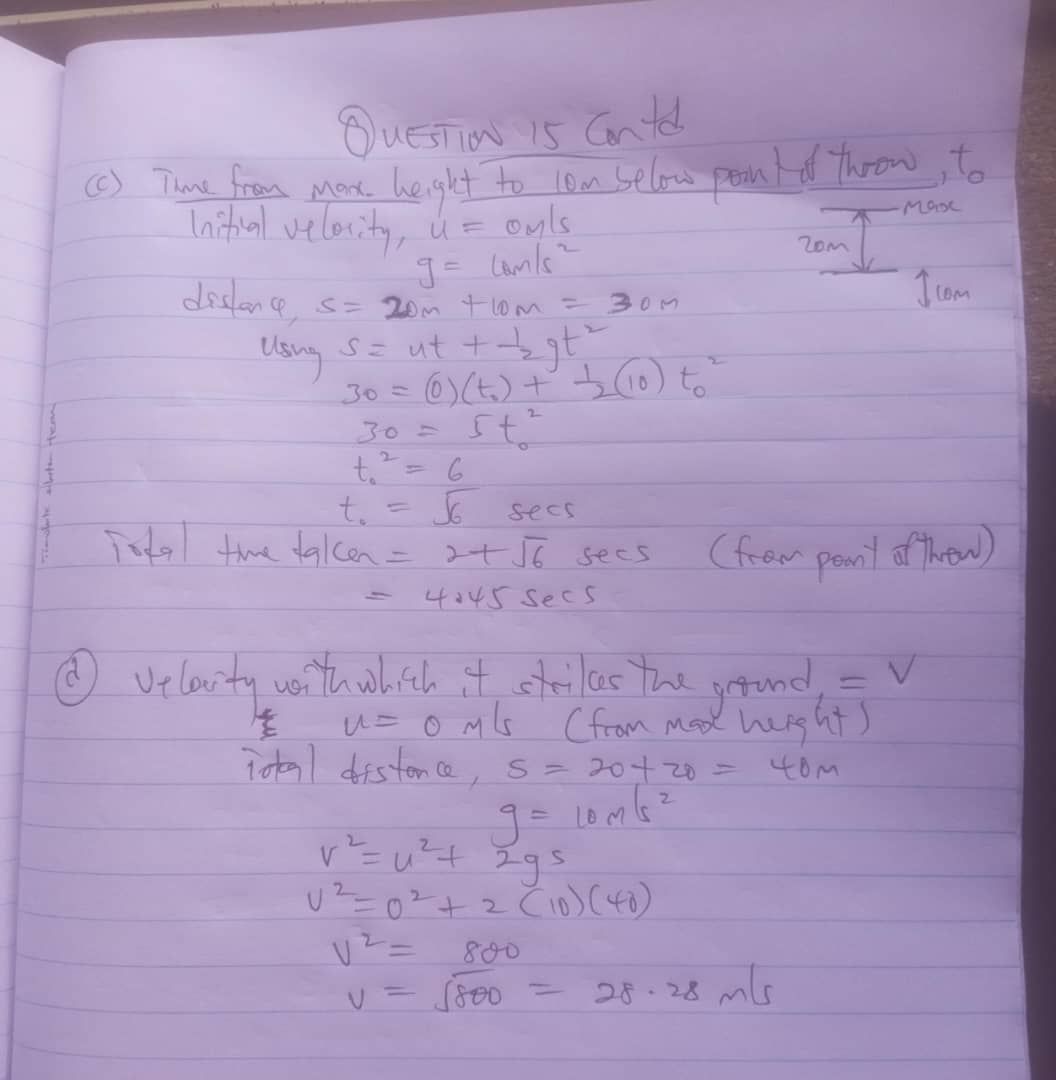 QUESTION 15 Contd
(c) Time from max. height to 10m below point of throw, t₀
Initial velocity, u = 0m/s
max
g = 10m/s²
20m
10m
distance, s = 20m + 10m = 30m
Using s = ut + ½gt²
30 = (0)(t₀) + ½(10) t₀²
30 = 5t₀²
t₀² = 6
t₀ = √6 secs
Total time taken = 2+√6 secs (from point of throw)
= 4.45 secs
(d) Velocity with which it strikes the ground, = V
u = 0 m/s (from max height)
Total distance, s = 20+20 = 40m
g = 10m/s²
v² = u² + 2gs
v² = 0² + 2(10)(40)
v² = 800
v = √800 = 28.28 m/s